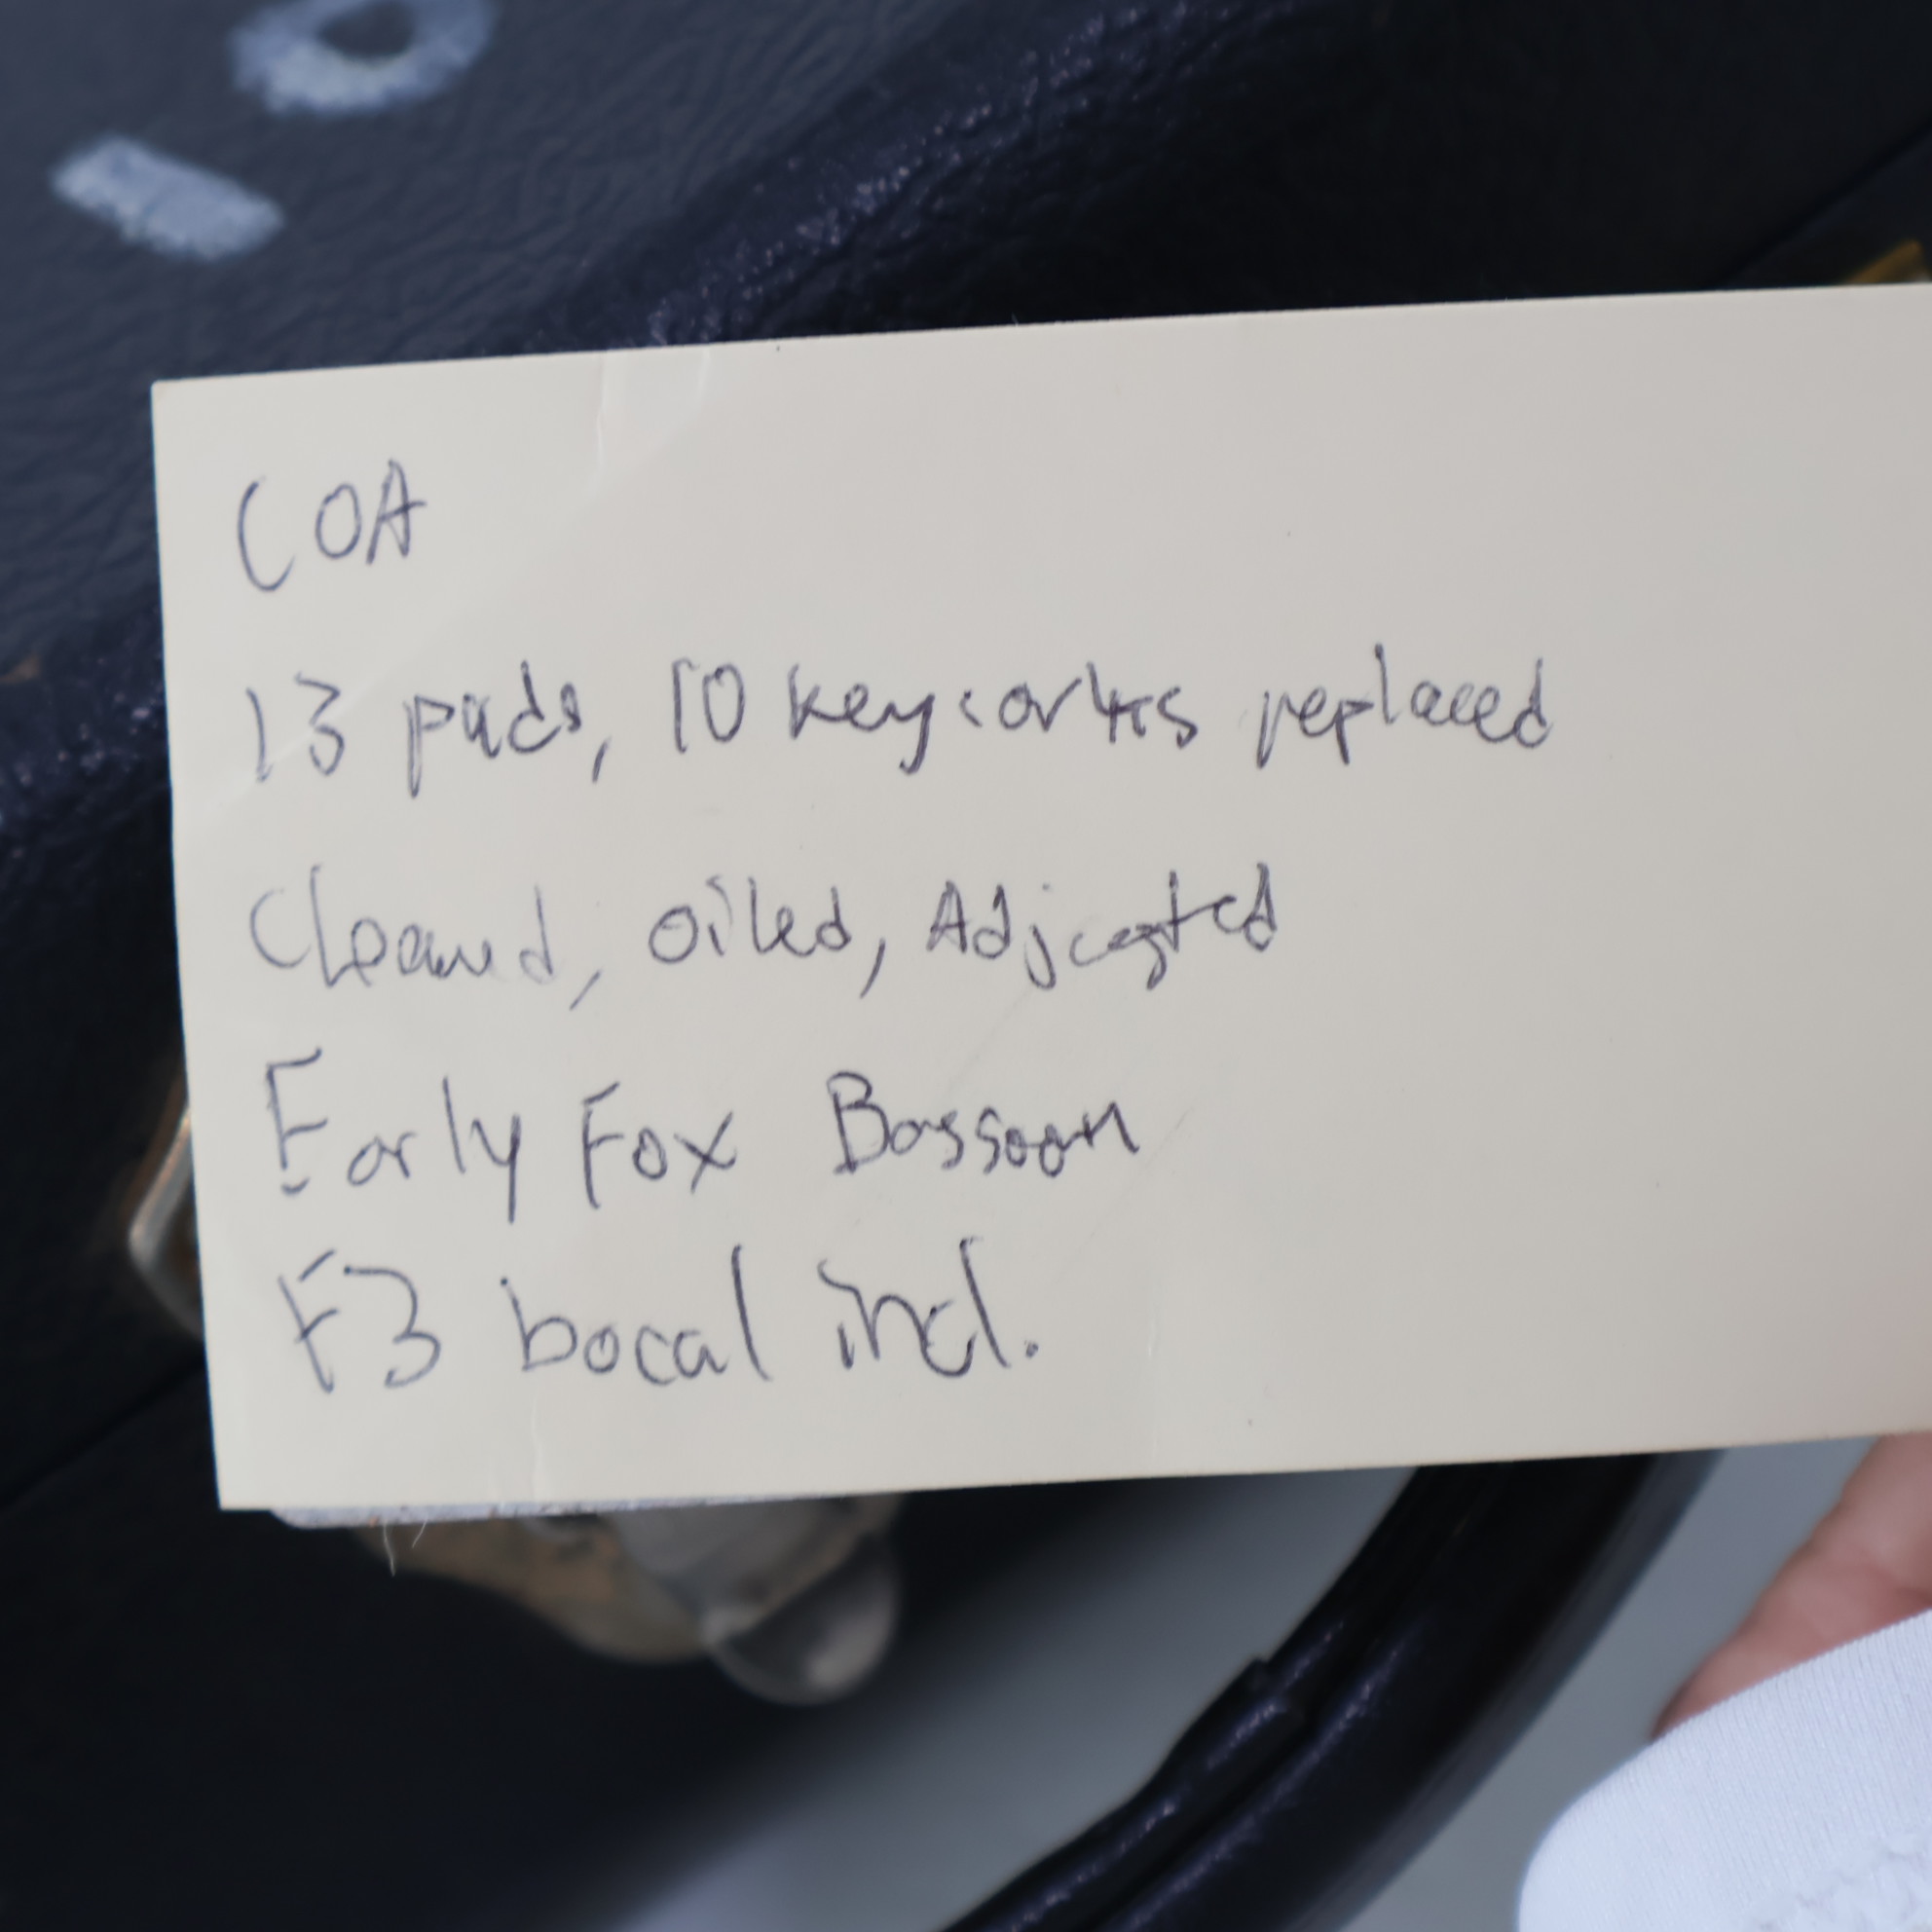 COA
13 pads, 10 keycorks replaced
Cleaned, oiled, Adjusted
Early Fox Bassoon
F3 bocal incl.